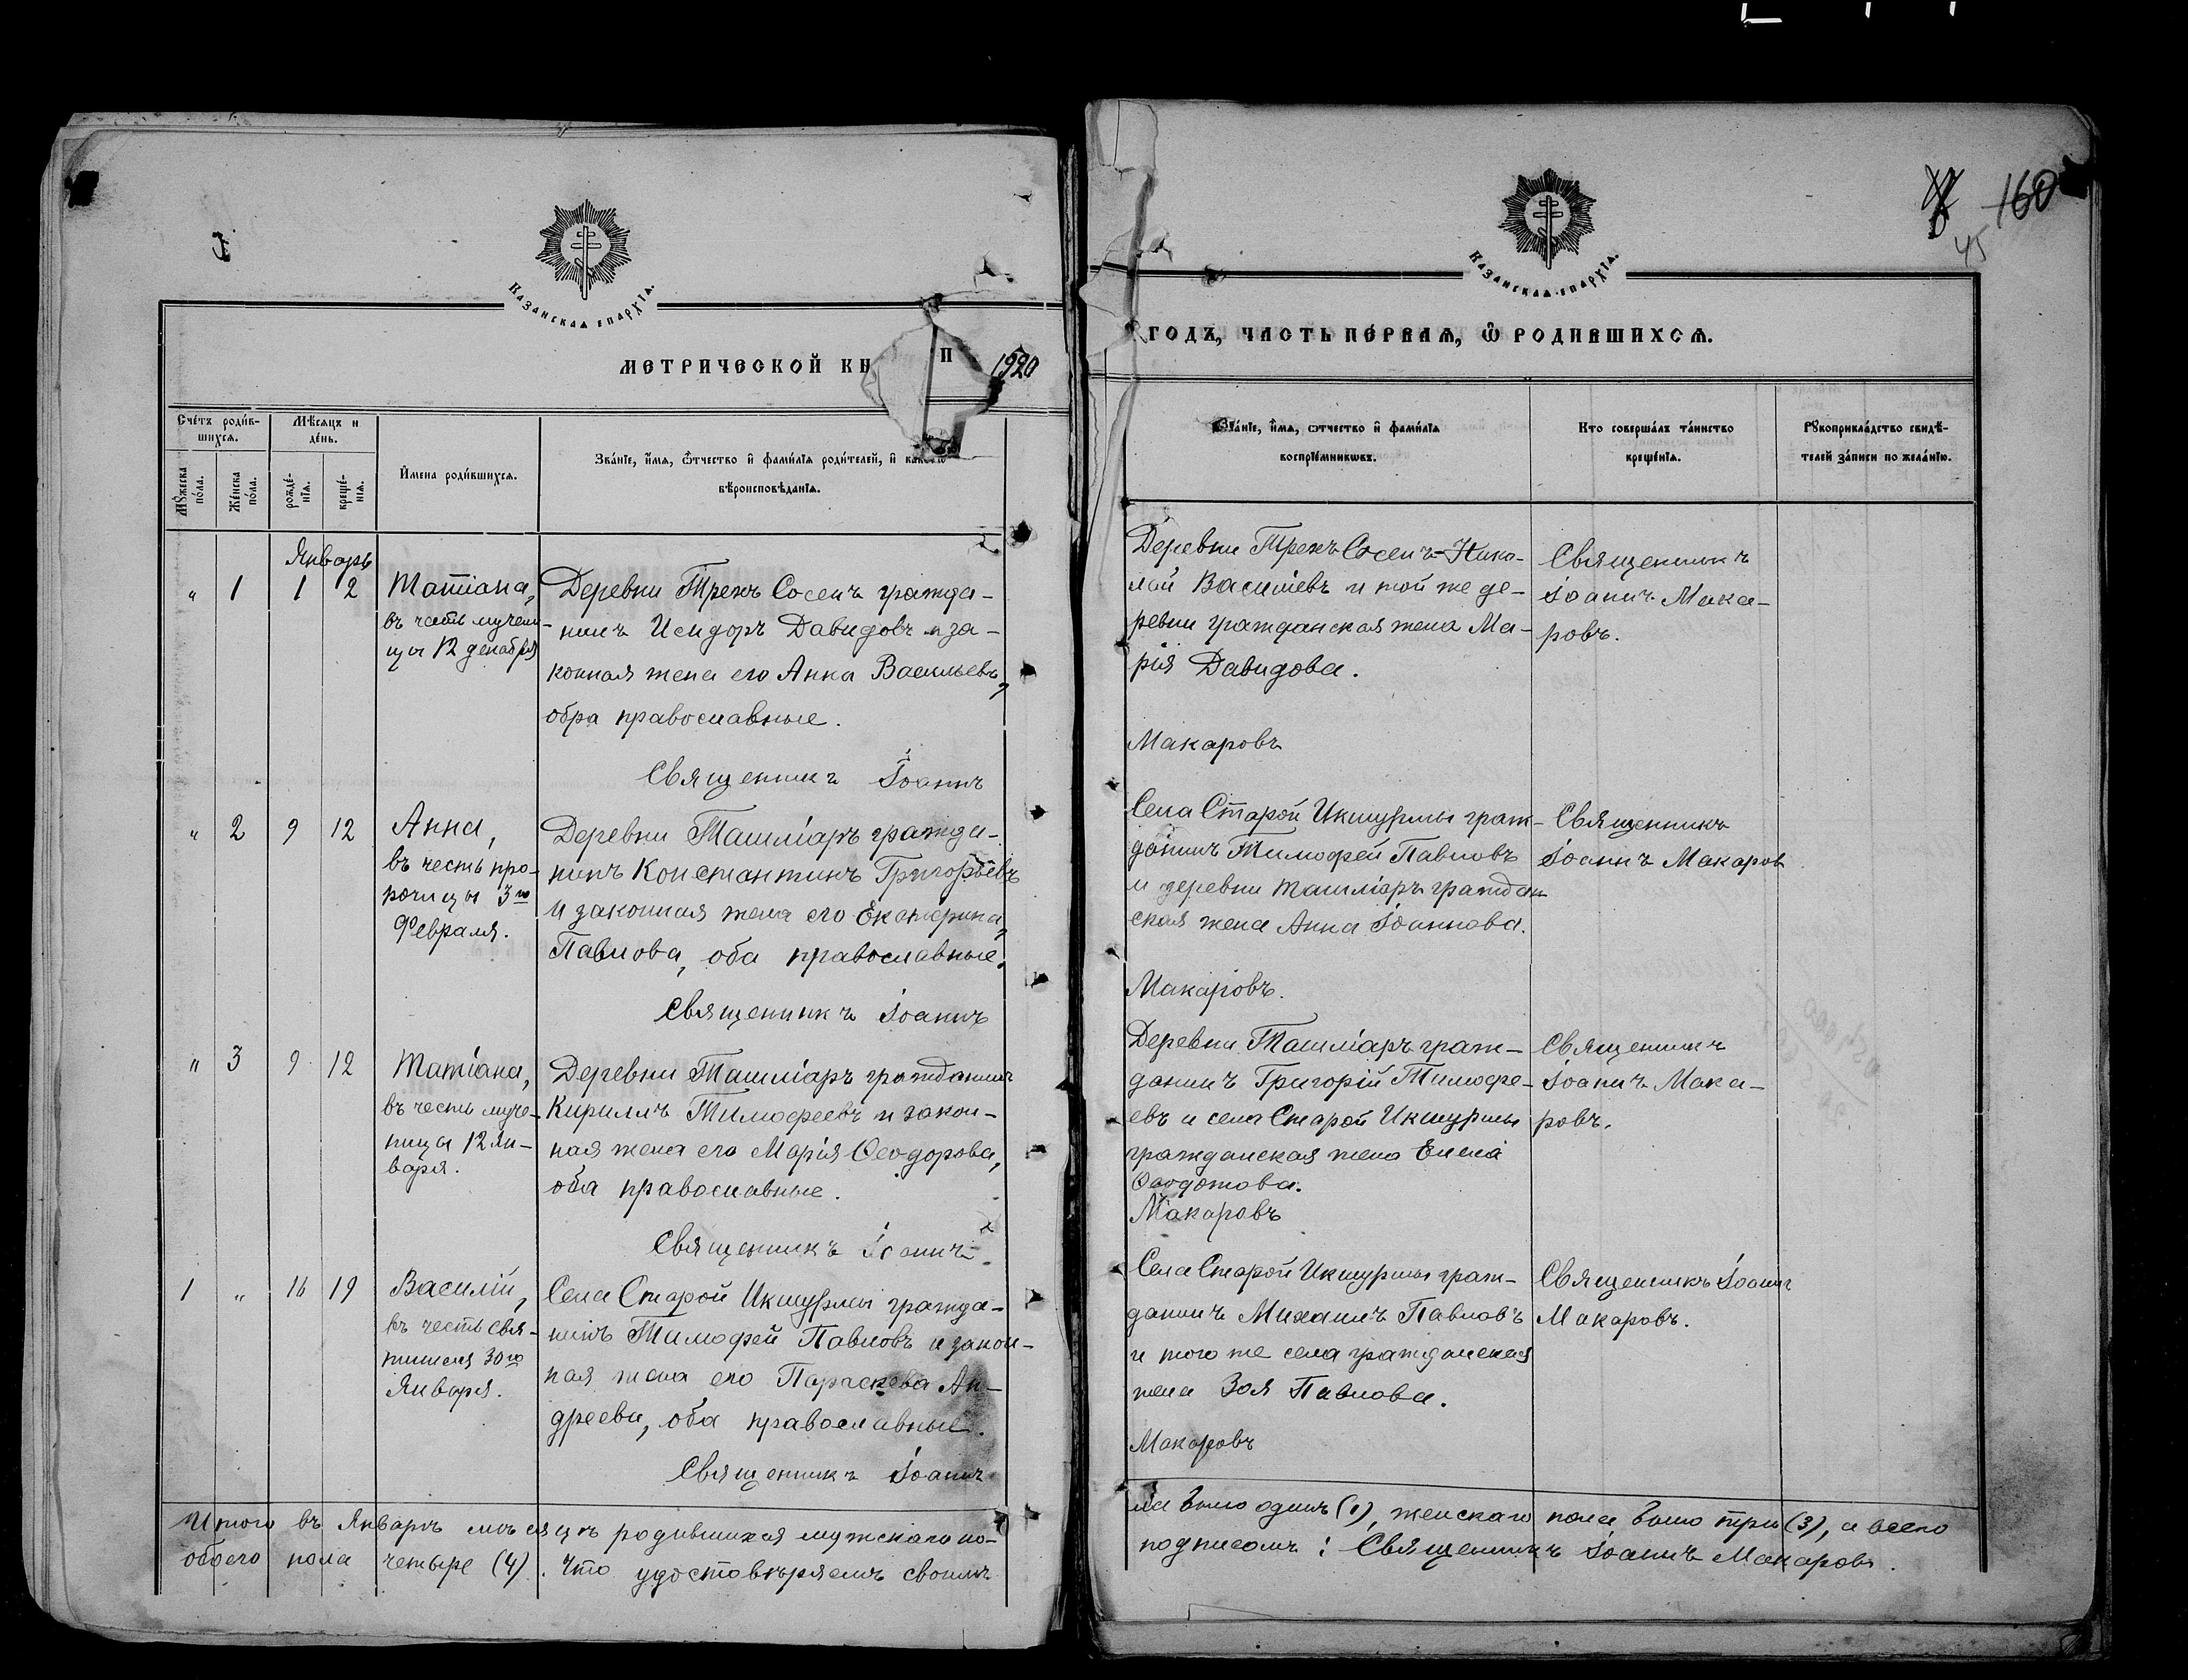 Казанская епархїѧ.
МЕТРИЧЕСКОЙ КН
И
1920
Счетъ роди́в-
шихсѧ.
Мѣ́сѧцъ и
де́нь.
Мꙋ́жеска
по́ла.
Же́нска
по́ла.
рожде́-
нїѧ.
креще́-
нїѧ.
Имена роди́вшихсѧ.
Зва́нїе, и́мѧ, ѻ́тчество и фами́лїѧ роди́телей, и
вѣроисповѣ́данїѧ.
Январь
" 1 1 2
Татіана,
въ честь мучени-
цы 12 декабря
Деревни Трехъ Сосенъ гражда-
нинъ Исидоръ Давидовъ и за-
конная жена его Анна Васильева,
обра православные.
Священникъ Іоаннъ
" 2 9 12
Анна,
въ честь про-
рочицы 3го
Февраля.
Деревни Ташліаръ гражда-
нинъ Константинъ Григорьевъ
и законная жена его Екатерина
Павлова, оба православные.
Священникъ Іоаннъ
" 3 9 12
Татіана,
въ честь муче-
ницы 12 Ян-
варя.
Деревни Ташліаръ гражданинъ
Кириллъ Тимофеевъ и закон-
ная жена его Марія Ѳеодорова,
оба православные.
Священникъ Іоаннъ
1 " 16 19
Василій,
въ честь свя-
тителя 30го
Января.
Села Старой Икшурмы гражда-
нинъ Тимофей Павловъ и закон-
ная жена его Параскева Ан-
дреева, оба православные.
Священникъ Іоаннъ
Итого въ Январѣ мѣсяцѣ родившихся мужскаго по-
обоего пола четыре (4). Что удостовѣряемъ своимъ
160
45
Казанская епархїѧ.
ГОДЪ, ЧАСТЬ ПЕ́РВАѦ, Ѽ РОДИВШИХСѦ.
Зва́нїе, и́мѧ, ѻтчество и фами́лїѧ
воспрїе́мникѡвъ.
Кто соверша́лъ та́инство
креще́нїѧ.
Рꙋкоприкла́дство свидѣ́-
телей за́писи по жела́нїю.
Деревни Трехъ Сосенъ Нико-
лай Васильевъ и той же де-
ревни гражданская жена Ма-
рія Давидова.
Священникъ
Іоаннъ Мака-
ровъ.
Макаровъ
Села Старой Икшурмы граж-
данинъ Тимофей Павловъ
и деревни Ташліаръ граждан
ская жена Анна Іоаннова.
Священникъ
Іоаннъ Макаров
Макаровъ.
Деревни Ташліаръ граж-
данинъ Григорій Тимофе-
евъ и села Старой Икшурмы
гражданская жена Елена
Ѳеодотова.
Священникъ
Іоаннъ Мака-
ровъ.
Макаровъ
Села Старой Икшурмы граж-
данинъ Михаилъ Павловъ
и того же села гражданская
жена Зоя Павлова.
Священникъ Іоаннъ
Макаровъ.
Макаровъ
ла было одинъ (1), женскаго пола было три (3), а всего
подписомъ: Священникъ Іоаннъ Макаровъ.